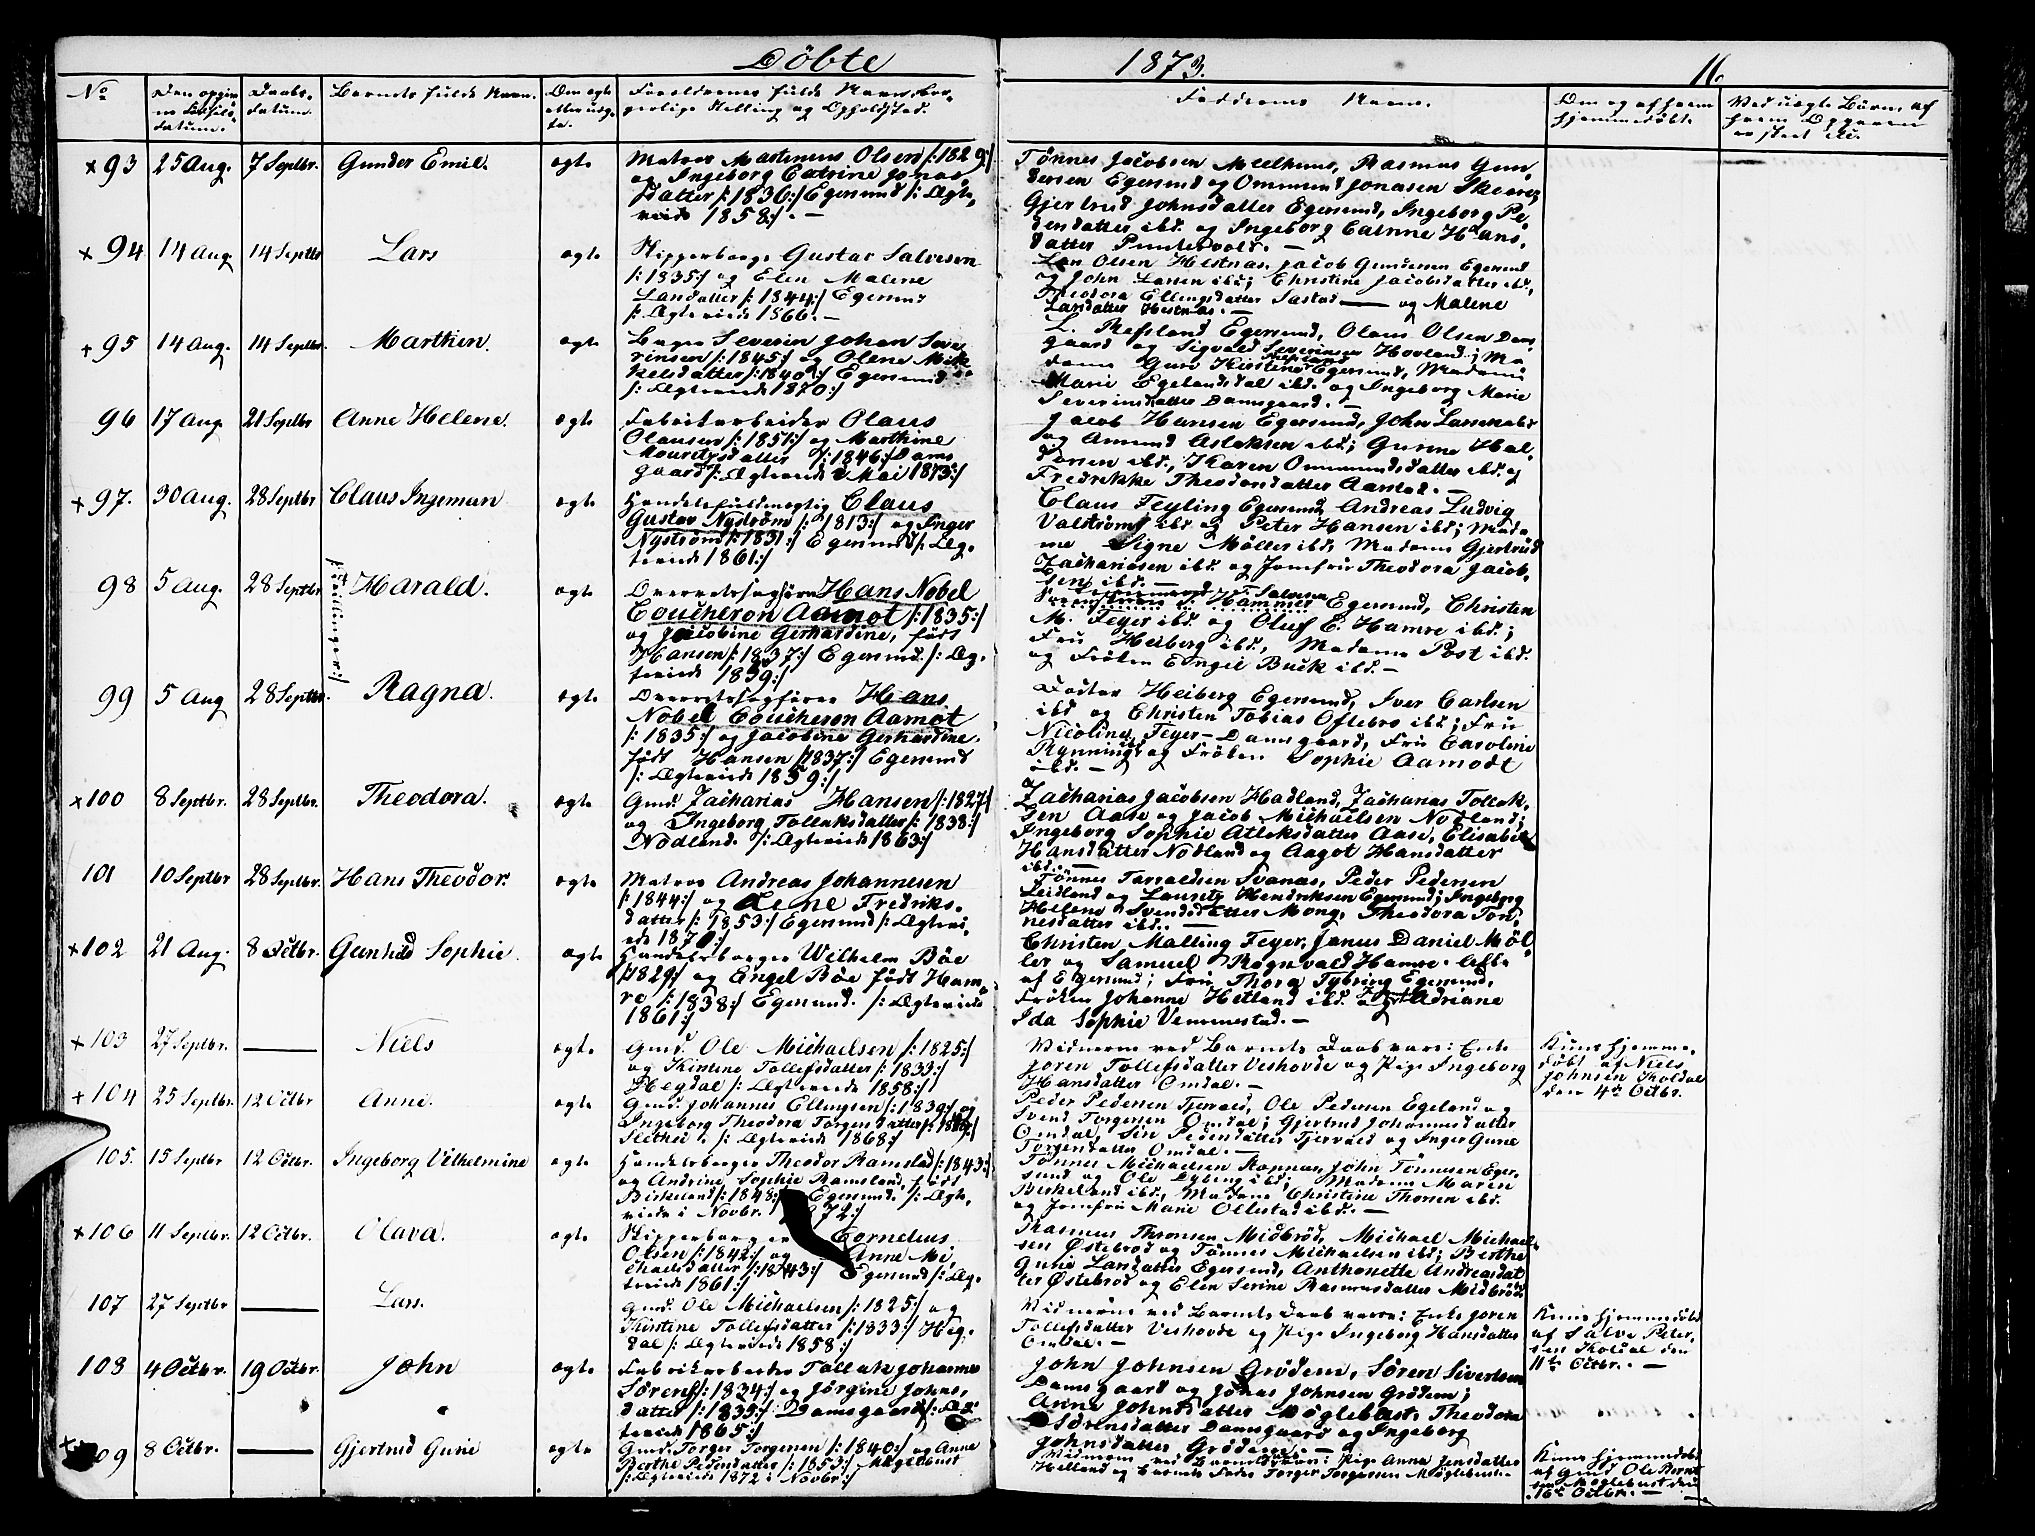 Döbte
1873.
11.
No
Den opgivne Fødselsdatum.
Daabsdatum.
Barnets fulde Navn.
Om ægte eller uægte.
Forældrenes fulde Navn, borgerlige Stilling og Opholdsted.
Faddernes Navn.
Om og af hvem hjemmedøbt.
Ved uægte Børn, af hvem Opgaven er skeet etc.
×93 25 Aug. 7 Septbr. Gunder Emil. ægte
Matros Martinius Olsen /:1829:/
og Ingeborg Catrine Jonas
Datter /:1836:/ Egersund /: Ægte
viede 1858:/. —
Tønnes Jacobsen Meelhuus, Rasmus Gun
dersen Egersund og Ommund Jonasen Skaare
Gjertrud Johnsdatter Egersund, Ingeborg Pe
dersdatter ibd. og Ingeborg Catrine Hans
datter Puntervold. —
×94 14 Aug. 14 Septbr. Lars ægte
Skipperborger Gustav Salvesen
/:1835:/ og Elen Malene
Larsdatter /:1844:/ Egersund
/: Ægteviede 1866. —
Lars Olsen Hestnæs, Jacob Gundersen Egersund
og John Larsen ibd; Christine Jacobsdatter ibd,
Theodora Ellingsdatter Sæstad — og Malene
Larsdatter Hestnæs. —
+95 14 Aug. 14 Septbr. Marthin. ægte
Bager Severin Johan Seve
rinsen /:1845:/ og Olene Mik
kelsdatter /:1840:/ Egersund
/: Ægteviede 1870:/
L. Refsland Egersund, Olaus Olsen Dams
gaard og Sigvald Severinsen Hovland; Ma
dame Guri Kirstine Refsland Egersund, Madame
Marie Egelandsdal ibd. og Ingeborg Marie
Severinsdatter Damsgaard. —
96 17 Aug. 21 Septbr Anne Helene. ægte
Fabrikarbeider Olaus
Olausen /:1851:/ og Marthine
Mouritzdatter /:1846:/ Dams
gaard /: Ægteviede 2 Mai 1873:/
Jacob Hansen Egersund, John Larsen ibd
og Amund Aslaksen ibd; Gurine Hal
dorsen ibd., Karen Ommundsdatter ibd. og
Fredrikke Theodorsdatter Aarstad. —
+97. 30 Aug. 28 Septbr Claus Ingeman ægte
Handelsfuldmægtig Claus
Gustav Nystrøm /:1813:/ og Inger
Nystrøm /:1831:/ Egersund /: Æg
teviede 1861:/
Claus Feyling Egersund, Andreas Ludvig
Valstrøm ibd. og Peter Hansen ibd; Mada
me Signe Møller ibd, Madame Gjertrud
Zachariasen ibd. og Jomfru Theodora Jacob
sen ibd. —
98 5 Aug. 28 Septbr /: Tvillinger:/ Harald. ægte
Overretssagfører Hans Nobel
Coucheron Aamot /:1835:/
og Jacobine Gerhardine, født
Hansen /:1837:/ Egersund. /: Æg
teviede 1859:/
Hammer Egersund, Christen
M. Feyer ibd. og Oluf E. Hamre ibd.;
Fru Heiberg ibd., Madame Post ibd.
og Frøken Engel Buck ibd. —
99 5 Aug 28 Septbr. Ragna. ægte
Overretssagfører Hans
Nobel Coucheron Aamot
/:1835:/ og Jacobine Gerhardine,
født Hansen /1837:/ Egersund
/: Ægteviede 1859:/
Doctor Heiberg Egersund, Iver Carlsen
ibd og Christen Tobias Oftebro ibd; Fru
Nicoline Feyer Damsgaard, Fru Caroline
Rynning ibd. og Frøken Sophie Aamodt
ibd. —
×100 8 Septbr. 28 Septbr. Theodora. ægte
Gmd. Zacharias Hansen /:1827:/
og Ingeborg Tollaksdatter /:1838:/
Nodland. /: Ægteviede 1863:/
Zacharias Jacobsen Hadland, Zacharias Tollak
sen Aase og Jacob Michaelsen Nodland;
Ingeborg Sophie Atlaksdatter Aase, Elisabet
Hansdatter Nodland og Aagot Hansdatter
ibd. —
101 10 Septbr 28 Septbr. Hans Theodor. ægte
Matros Andreas Johannesen
/:1844:/ og Lene Fredriks
datter /:1853:/ Egersund /: Ægtevi
ede 1870:/
Tønnes Torvaldsen Svanæs, Peder Pedersen
Leidland og Lauritz Hendriksen Egersund; Ingeborg
Helene Svendsdatter Mong, Theodora Tøn
nesdatter ibd. —
×102 21 Aug. 8 Octbr. Gunhild Sophie. ægte
Handelsborger Wilhelm Böe
/1829/ og Engel Böe født Ham
re /:1838:/ Egersund. /: Ægteviede
1861:/
Christen Malling Feyer, Janus Daniel Møl
ler og Samuel Rognvald Hamre, alle
af Egersund; Fru Thora Tybring Egersund,
Frøken Johanne Hetland ibd. og Adriane
Ida Sophie Vemmestad. —
×103 27 Septbr. — Niels ægte
Gmd. Ole Michaelsen /:1825:/
og Kirstine Tollefsdatter /:1833:/
Hegdal /: Ægteviede 1858:/
Vidnerne ved Barnets Daab vare: Enke
Joren Tollefsdatter Veshovde og Pige Ingeborg
Hansdatter Omdal. —
Kun hjemme
døbt af Niels
Johnsen Koldal
den 4de Octbr.
+104 25 Septbr. 12 Octbr Anne. ægte
Gmd. Johannes Ellingsen /:1839:/ og
Ingeborg Theodora Torgersdatter
Slethei. /: Ægteviede 1868:/
Peder Pedersen Tjorvald, Ole Pedersen Egeland og
Svend Torgersen Omdal; Gjertrud Johannesdatter
Omdal, Siri Pedersdatter Tjorvald og Inger Gurie
Torgersdatter Omdal. —
105. 15 Septbr 12 Octbr. Ingeborg Vilhelmine ægte
Handelsborger Theodor Ramsland /:1843:/
og Andrine Sophie Ramsland, født
Birkeland /:1848:/ Egersund. /: Ægte
viede i Novbr. 1872:/
Tønnes Michaelsen Hopnæs, John Tønnesen Eger
sund og Ole Lyberg ibd; Madame Maren
Birkeland ibd., Madame Christine Thorsen ibd.
og Jomfru Marie Ollestad ibd. —
×106 11 Septbr. 12 Octbr. Olava. ægte
Skipperborger Cornelius
Olsen /:1842:/ og Anne Mi
chaelsdatter /:1843:/ Egersund /: Æg
teviede 1861:/
Rasmus Thronsen Midbrød, Michael Michael
sen Østebrød og Tønnes Michaelsen ibd; Berthe
Gurie Larsdatter Egersund, Anthonette Andreasdat
ter Østebrød og Elen Serine Rasmusdatter Midbrød.
107 27 Septbr — Lars. ægte
Gmd. Ole Michaelsen /:1825:/ og
Kirstine Tollefsdatter /:1833:/ Heg
dal /: Ægteviede 1858:/
Vidnerne ved Barnets Daab vare: Enke Joren
Tollefsdatter Veshovde og Pige Ingeborg Hansdatter
Omdal. —
Kun hjemmedøbt
af Salve Peter
sen Koldal den
11te Octbr. —
108 4 Octbr. 19 Octbr. John ægte
Fabrikarbeider Tallak Johannes
Sørens /:1834:/ og Jørgine Johns
datter /:1839:/ Damsgaard /: Æg
teviede 1865:/
John Johnsen Grødem, Søren Sivertsen
Damsgaard og Jonas Johnsen Grødem;
Anne Johnsdatter Møglebust, Theodora
Sørensdatter Damsgaard og Ingeborg
Johnsdatter Grødem. —
109 8 Octbr. — Gjertrud Gurie ægte
Gmd. Torger Torgersen /:1840:/ og Anne
Berthe Pedersdatter /:1853:/ Møglebust
/: Ægteviede 1872 i Novbr:/
Vidnerne ved Barnedaaben: Pige Anna Jensdatter
Helland og Barnets Fader Torger Torgersen Møglebust. —
Kun hjemmedøbt
af Gmd Ole Bernt
sen Møglebust den
16de Octbr. —